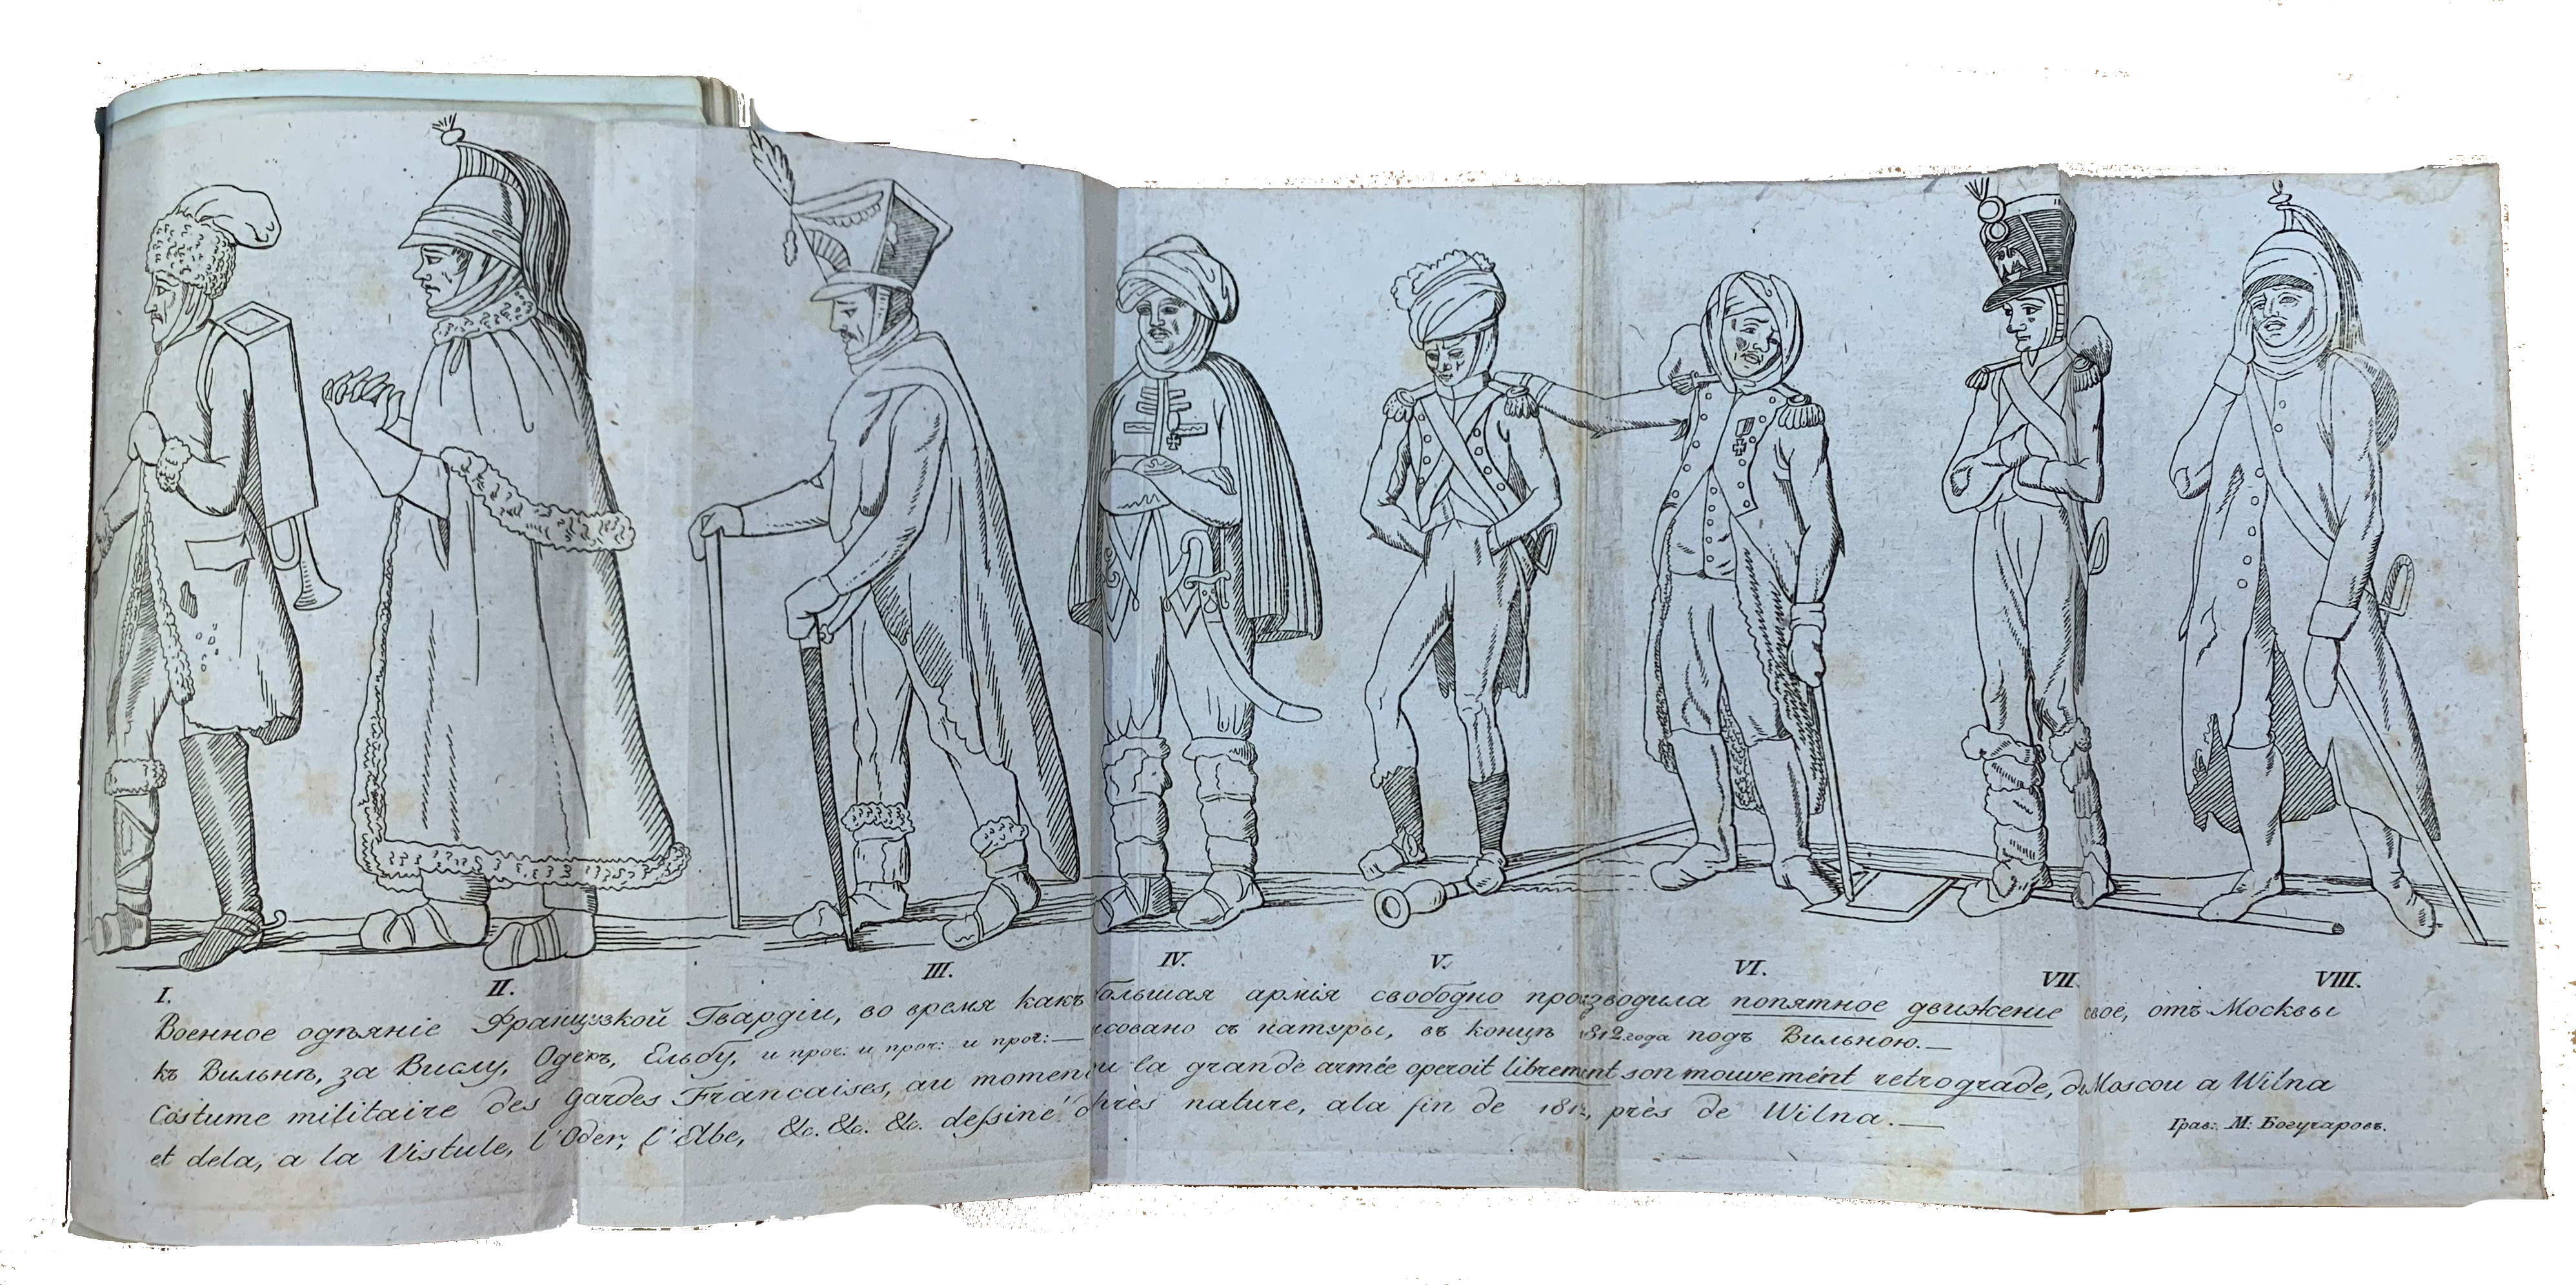 I. II. III. IV. V. VI. VII. VIII.
Военное одѣянiе Французкой Гвардiи, во время какъ большая армiя свободно производила попятное движенiе свое, отъ Москвы
къ Вильнѣ, за Вислу, Одеръ, Ельбу, и проч: и проч: и проч:— исовано съ натуры, въ концѣ 1812 года подъ Вильною.—
Costume militaire des gardes Francaises, au momen u la grande armée operoit librement son mouvemént retrograde, d Moscou a Wilna
et dela, a la Vistule, l'Oder, l'Elbe, &c. &c. &c. dessiné d près nature, ala fin de 1812, près de Wilna.—
Грав: М: Богучаровъ.